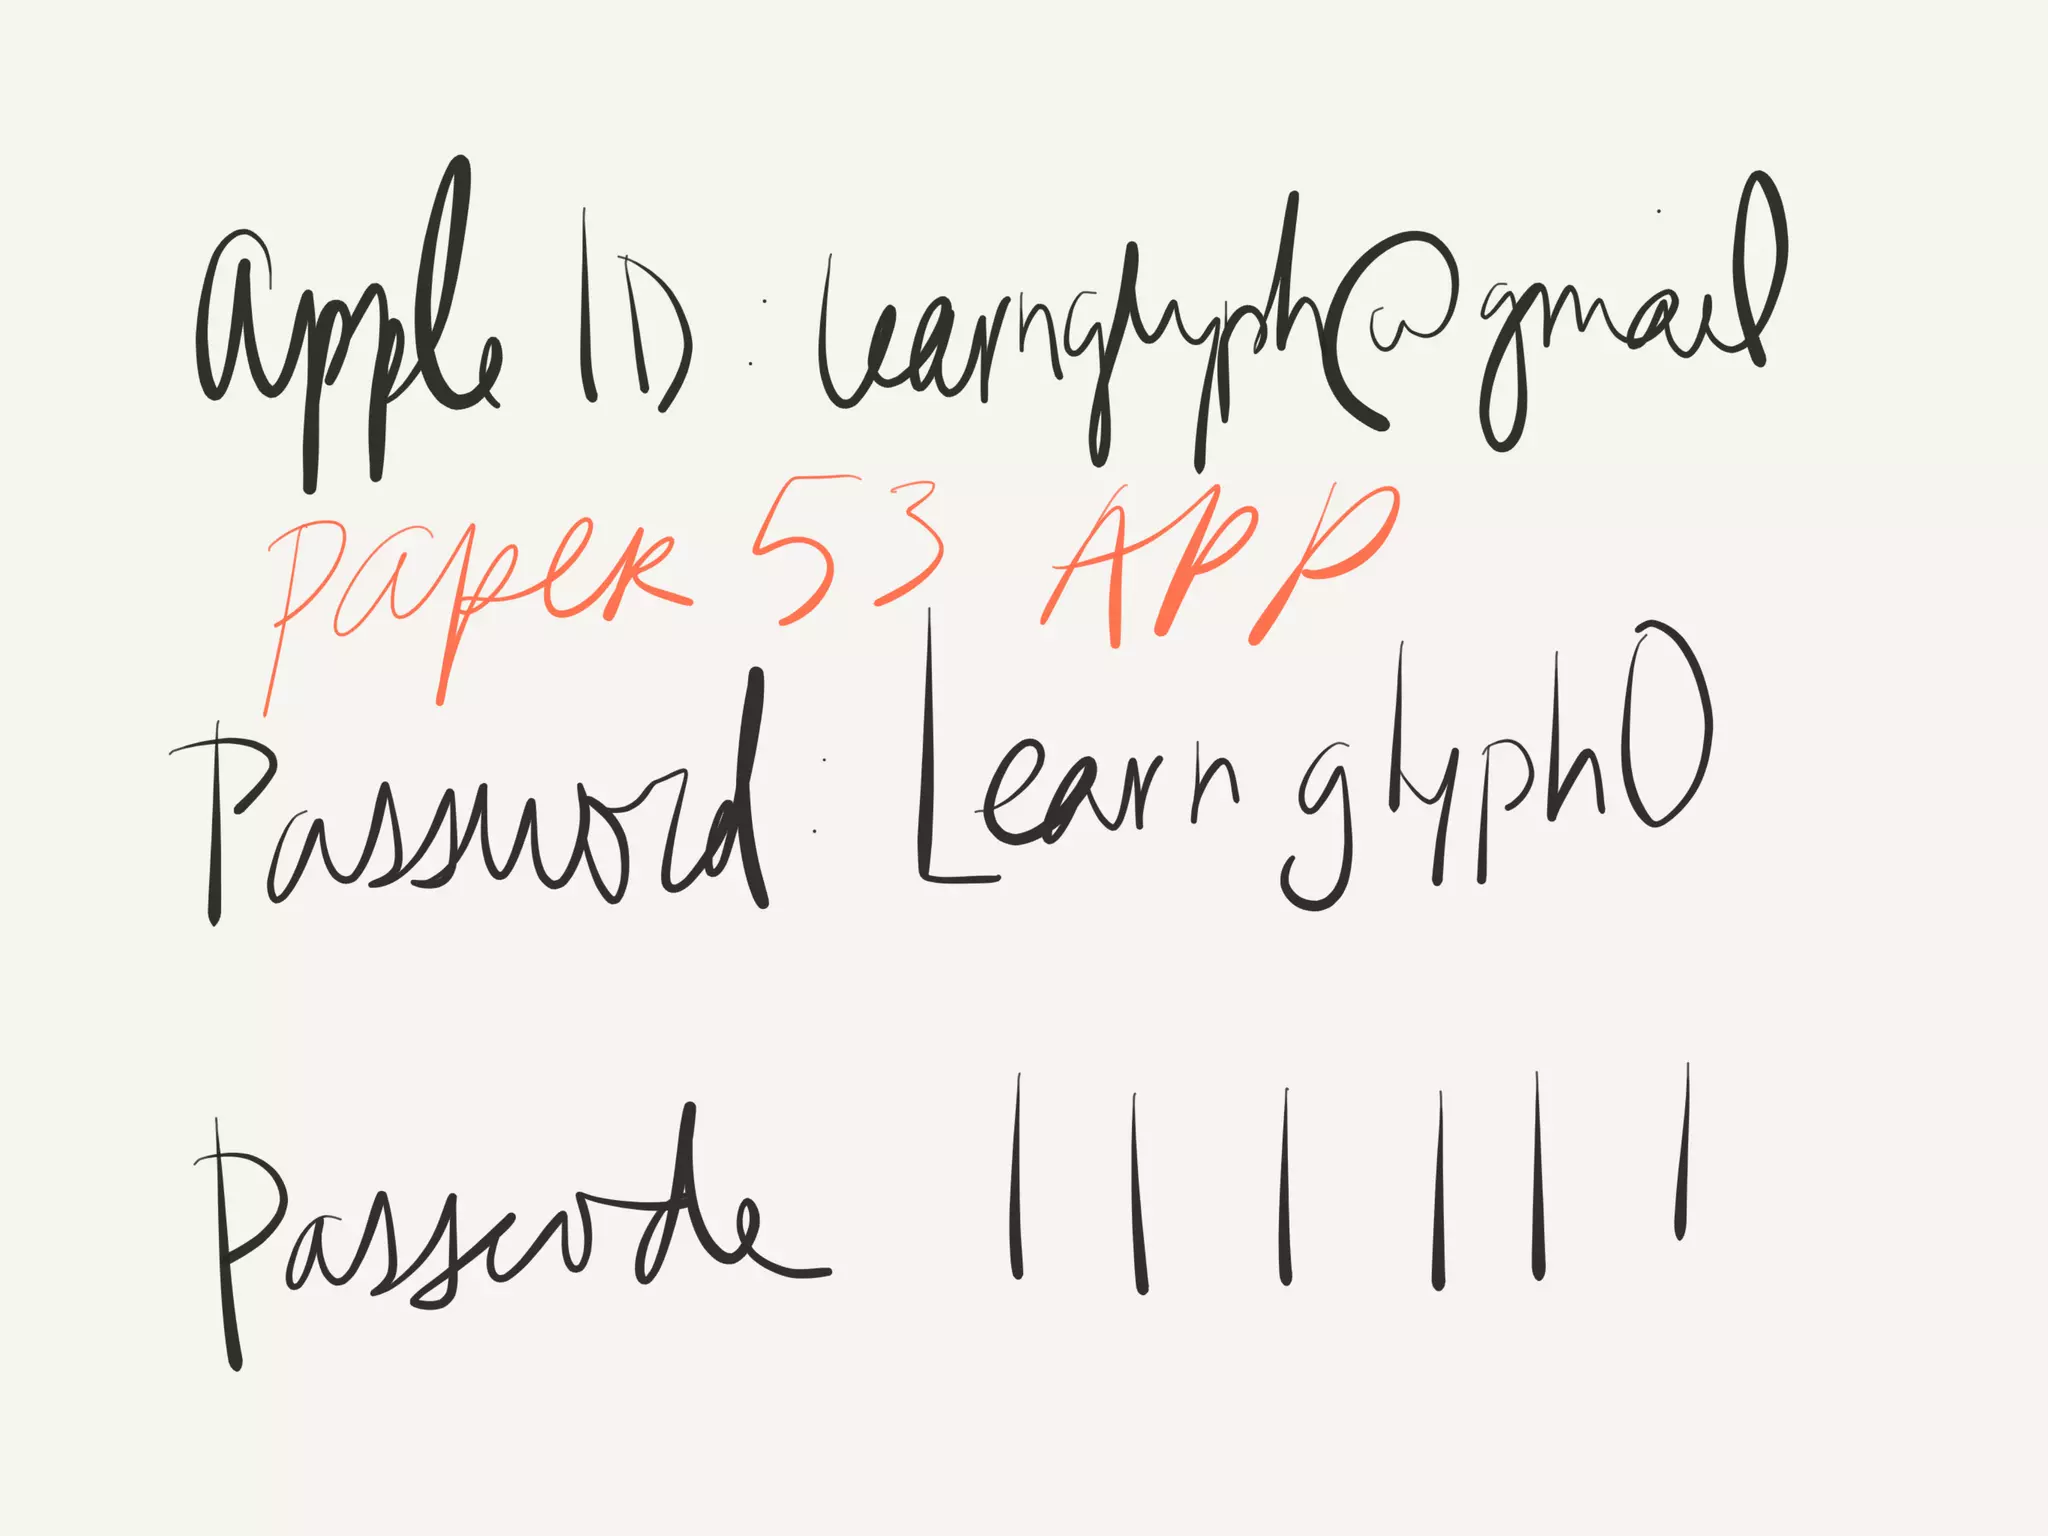 Apple ID : learnglyph@gmail
PAPER 53 APP
Password : Learnglyph0
Passcode 1 1 1 1 1 1